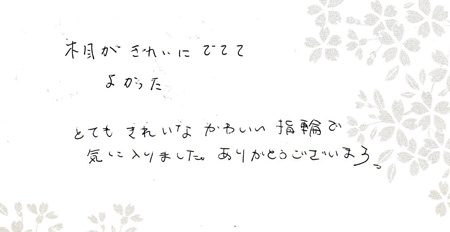 木目がきれいにでてて
よかった
とてもきれいなかわいい指輪で
気に入りました。ありがとうございまう。